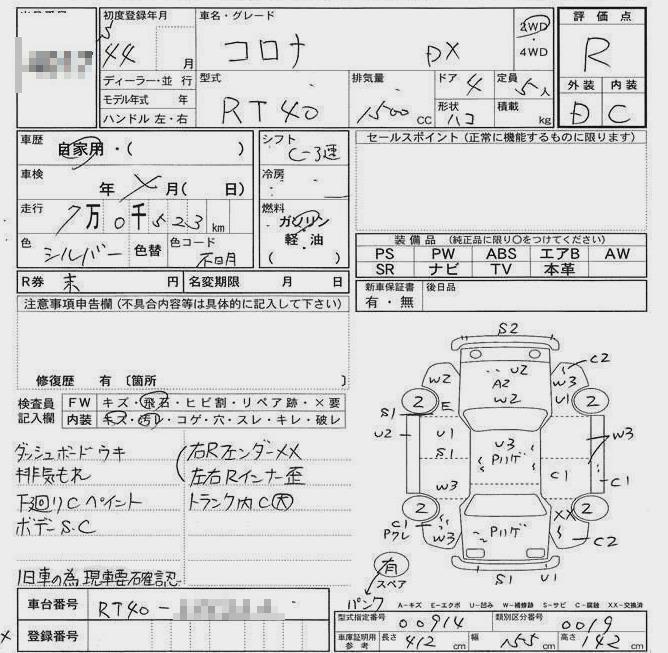 初度登録年月
44 月
ディーラー・並 行
モデル年式 年
ハンドル 左・右
車名・グレード
コロナ DX
2WD
4WD
型式
RT40
排気量
1500 CC
ドア 4
定員 5人
形状 ハコ
積載 kg
評 価 点
R
外装 内装
D C
車歴
自家用・( )
車検
年 X 月( 日)
走行
7万0千523km
色 シルバー 色替
色コード 不明
シフト
C-3速
冷房
燃料
ガソリン
軽・油
( )
セールスポイント (正常に機能するものに限ります)
装 備 品 (純正品に限り○をつけてください)
PS PW ABS エアB AW
SR ナビ TV 本革
R券 未 円
名変期限 月 日
新車保証書
有・無
後日品
注意事項申告欄(不具合内容等は具体的に記入して下さい)
修復歴 有 〔箇所 〕
検査員
記入欄
FW キズ・飛石・ヒビ割・リペア跡・×要
内装 キズ・汚レ・コゲ・穴・スレ・キレ・破レ
ダッシュボードウキ
排気もれ
下回りCペイント
ボデーS.C
右RフェンダーXX
左右Rインナー歪
トランク内C大
旧車の為現車要確認
車台番号 RT40-
登録番号
S2
U2
A2
W2
W2
C2
W3
U1
2
2
E
S1
U2
U1
S1
W3
U3
Pハゲ
C1
W3
C1
2
2
C1
Pワレ
W3
Pハゲ
XX
C2
S1
U1
有
スペア
パンク
A-キズ E-エクボ U-凹み W-補修跡 S-サビ C-腐蝕 XX-交換済
型式指定番号 00914
類別区分番号 0019
車庫証明用
参 考
長さ 412 cm
幅 155 cm
高さ 142 cm